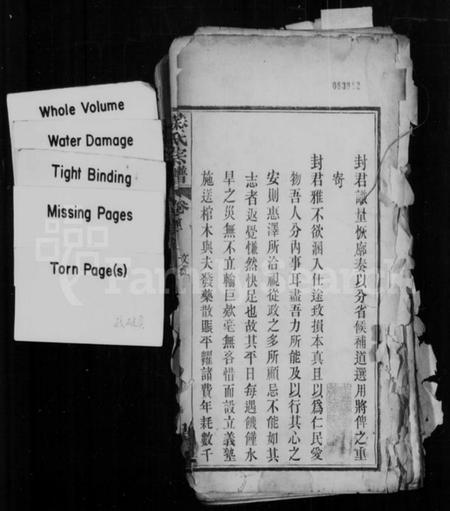 Whole Volume
Water Damage
Tight Binding
Missing Pages
Torn Page(s)
083852
封君識量恢廓奏以分省候補道選用將俾之重
寄
封君雅不欲溷人仕途致損本真且以為仁民愛
物吾人分內事耳盡吾力所能及以行其心之
安則惠澤所洽視從政之多所顧忌不能如其
志者返覺慊然快足也故其平日每遇饑饉水
旱之災無不立輸巨欵毫無吝惜而設立義塾
施送棺木與夫發藥散賑平糶諸費年耗數千
氏宗譜